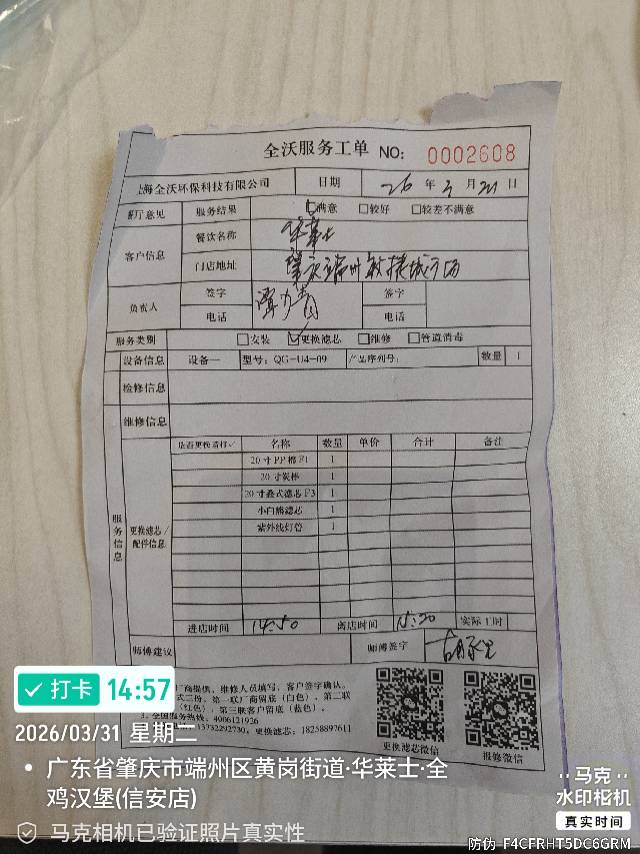 全沃服务工单 NO: 0002608
上海全沃环保科技有限公司 日期 26 年 3 月 31 日
餐厅意见 服务结果 满意 较好 较差不满意
客户信息 餐饮名称 华莱士
门店地址 肇庆端州敏捷城广场
负责人 签字 签字
电话 电话
服务类别 安装 更换滤芯 维修 管道消毒
设备信息 设备一 型号: QG-U4-09 产品序列号: 数量 1
检修信息
维修信息
服务信息 更换滤芯/配件信息 是否更换请打✓ 名称 数量 单价 合计 备注
20寸PP棉F1 1
20寸炭棒 1
20寸叠式滤芯F3 1
小白熊滤芯 1
紫外线灯管 1
进店时间 14:50 离店时间 15:20 实际工时
师傅建议 师傅签字
厂商提供, 维修人员填写, 客户签字确认。
式三份, 第一联厂商留底（白色）, 第二联
（红色）, 第三联客户留底（蓝色）。
3. 全国服务热线: 4006121926
13732292730; 更换滤芯: 18258897611
更换滤芯微信 报修微信
打卡 14:57
2026/03/31 星期二
广东省肇庆市端州区黄岗街道·华莱士·全
鸡汉堡(信安店)
马克相机已验证照片真实性
马克
水印相机
真实时间
防伪 F4CFRHT5DC6GRM